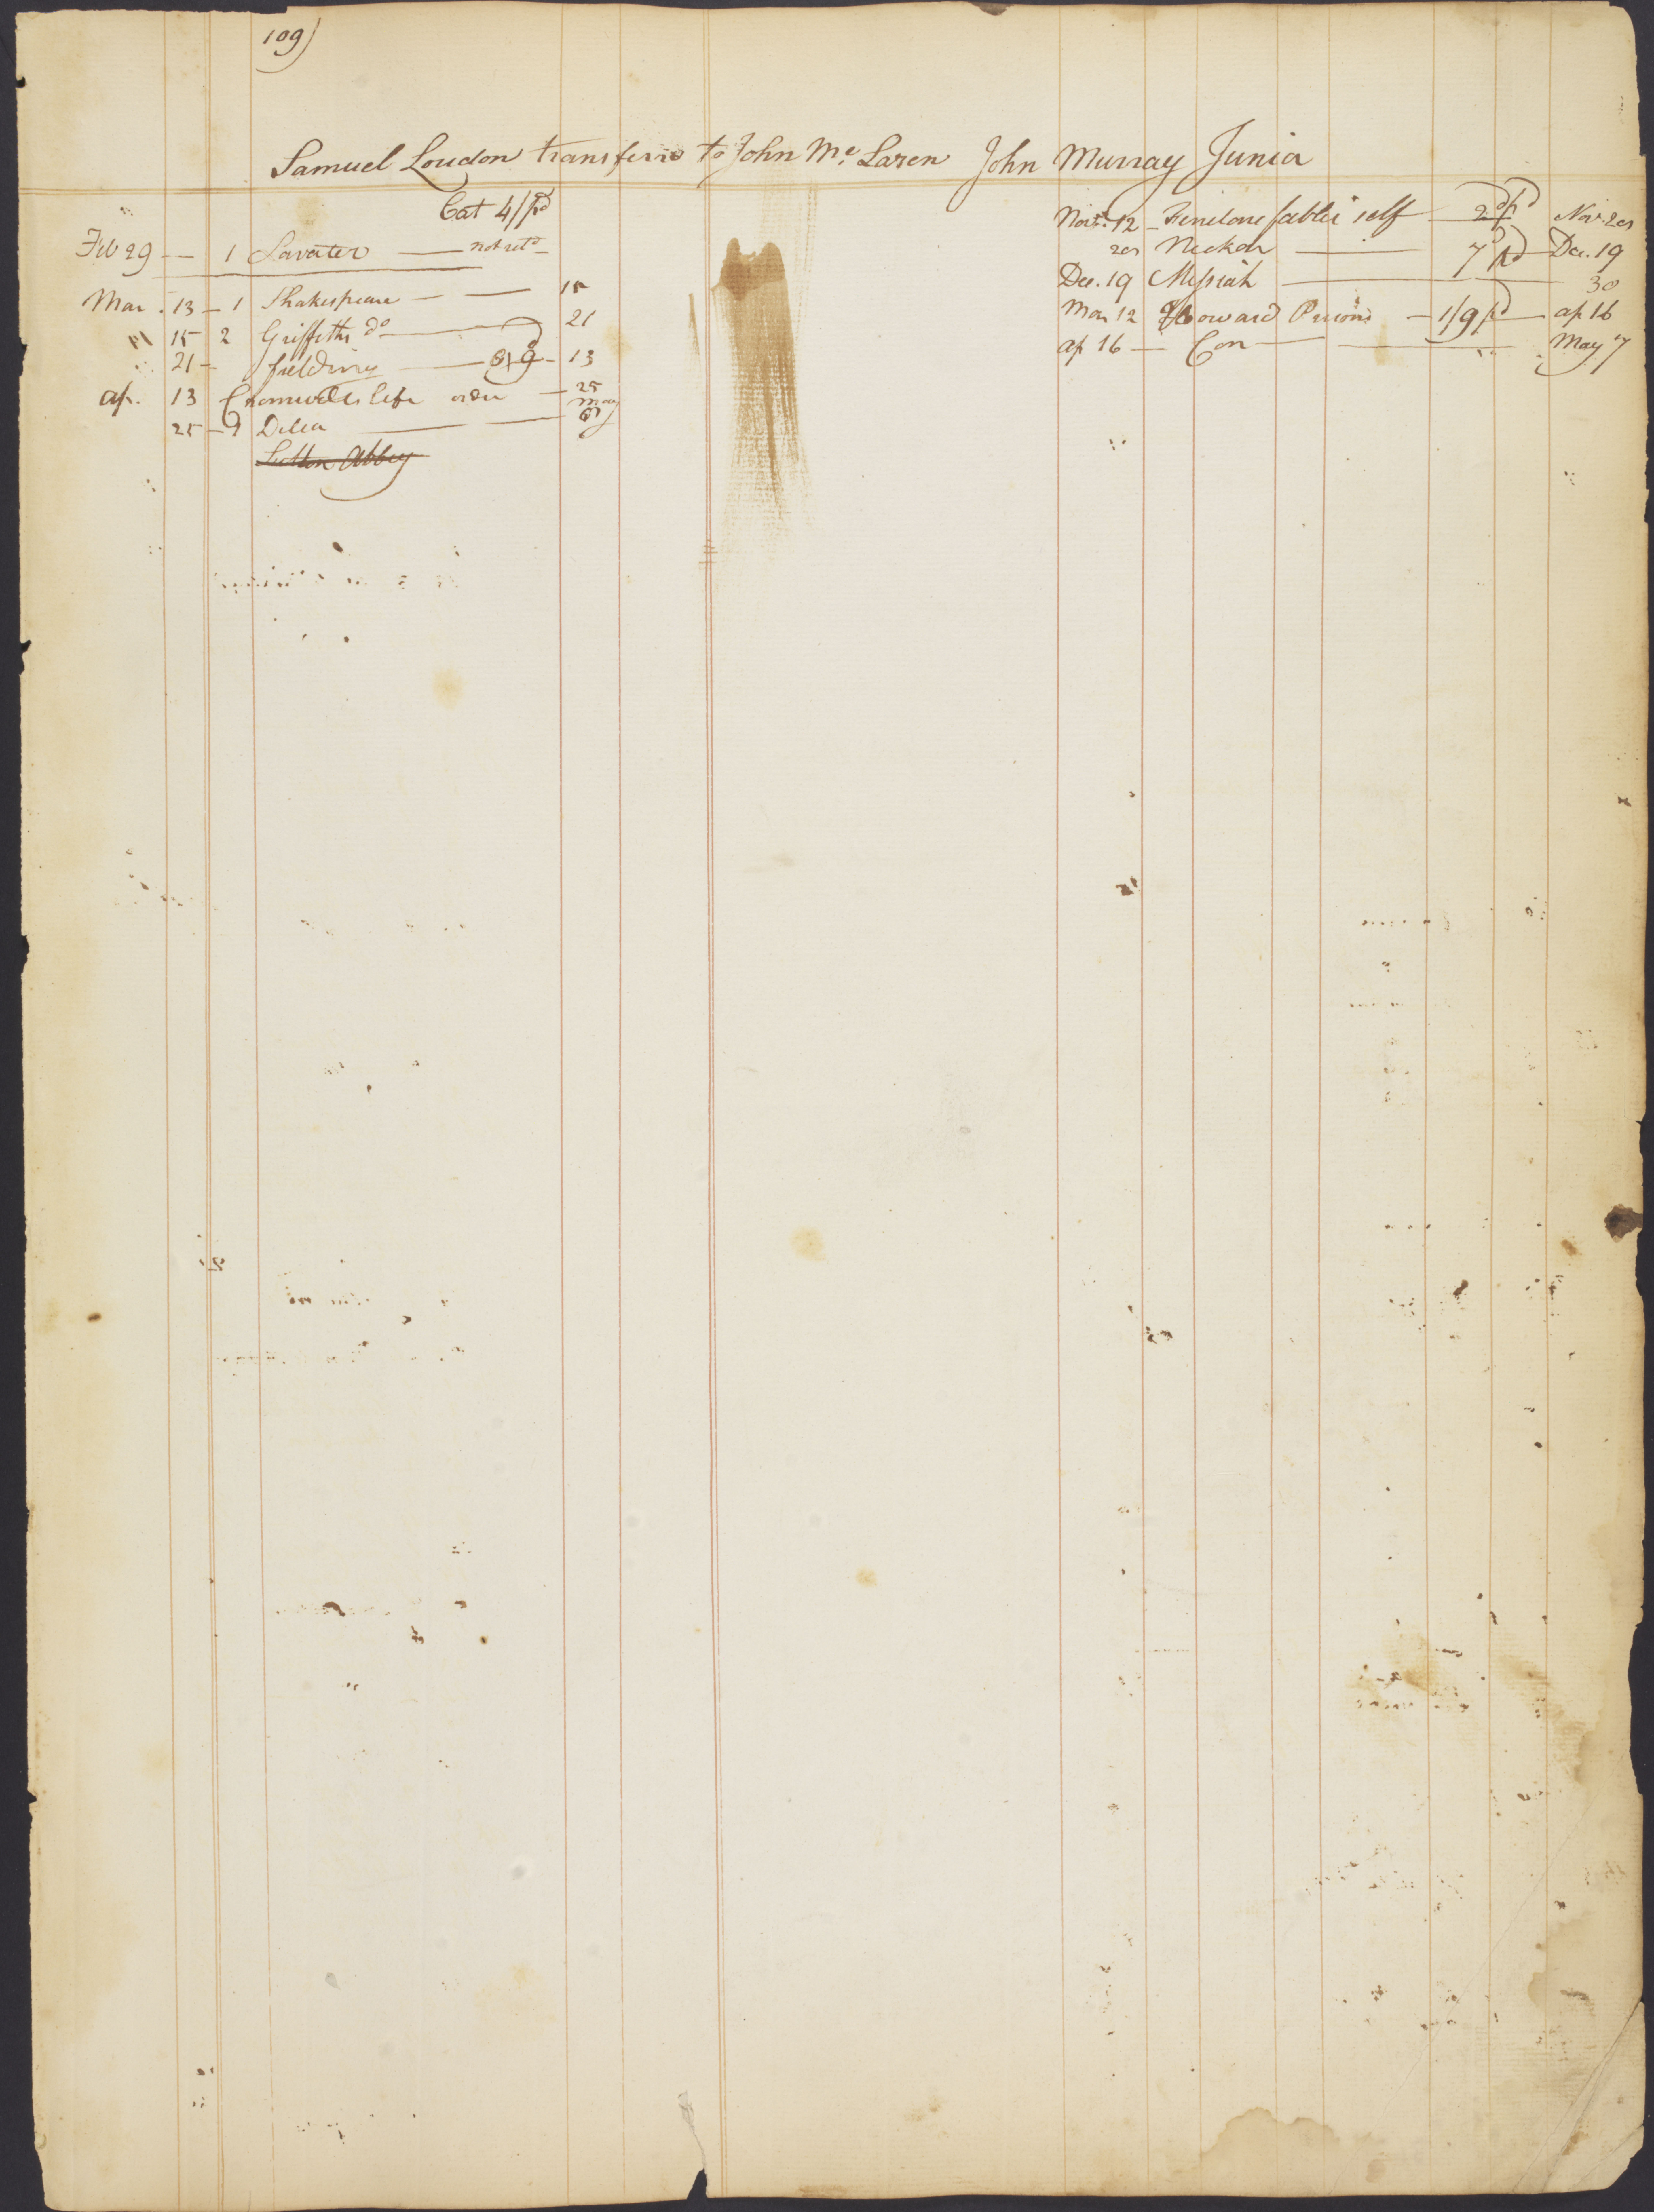 109)
Samuel Loudon transferred to John Mc Laren
Cat 4/ pd
Feb 29 — 1 Lavater — not retd —
Mar. 13 — 1 Shakespeare — — 15
15 2 Griffiths do — 21
21 — fielding — 13
ap. 13 Cromwells life — 25
25 — Delia — — May
Sutton Abbey
John Murray Junior
Novr. 12 — Fenelons fables self — 2d pd Nov 20
20 Neckar — 7d pd — Dec. 19
Dec. 19 Messiah — 30
Mar 12 Howard Prisons — 1/9 pd — ap 16
ap 16 — Con — — May 7